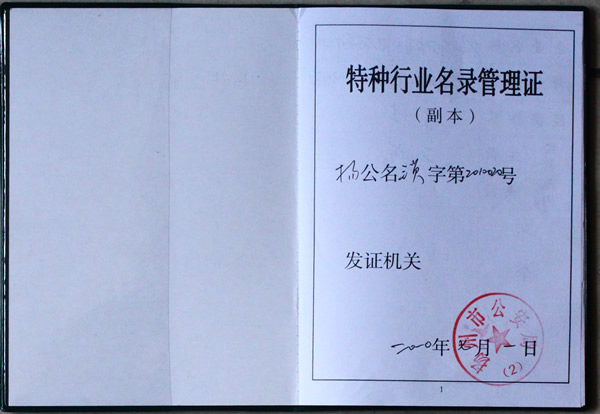 特种行业名录管理证
（副本）
扬公名 字第2010020号
发证机关
扬州市公安局
(2)
二〇一〇年 月一日
1